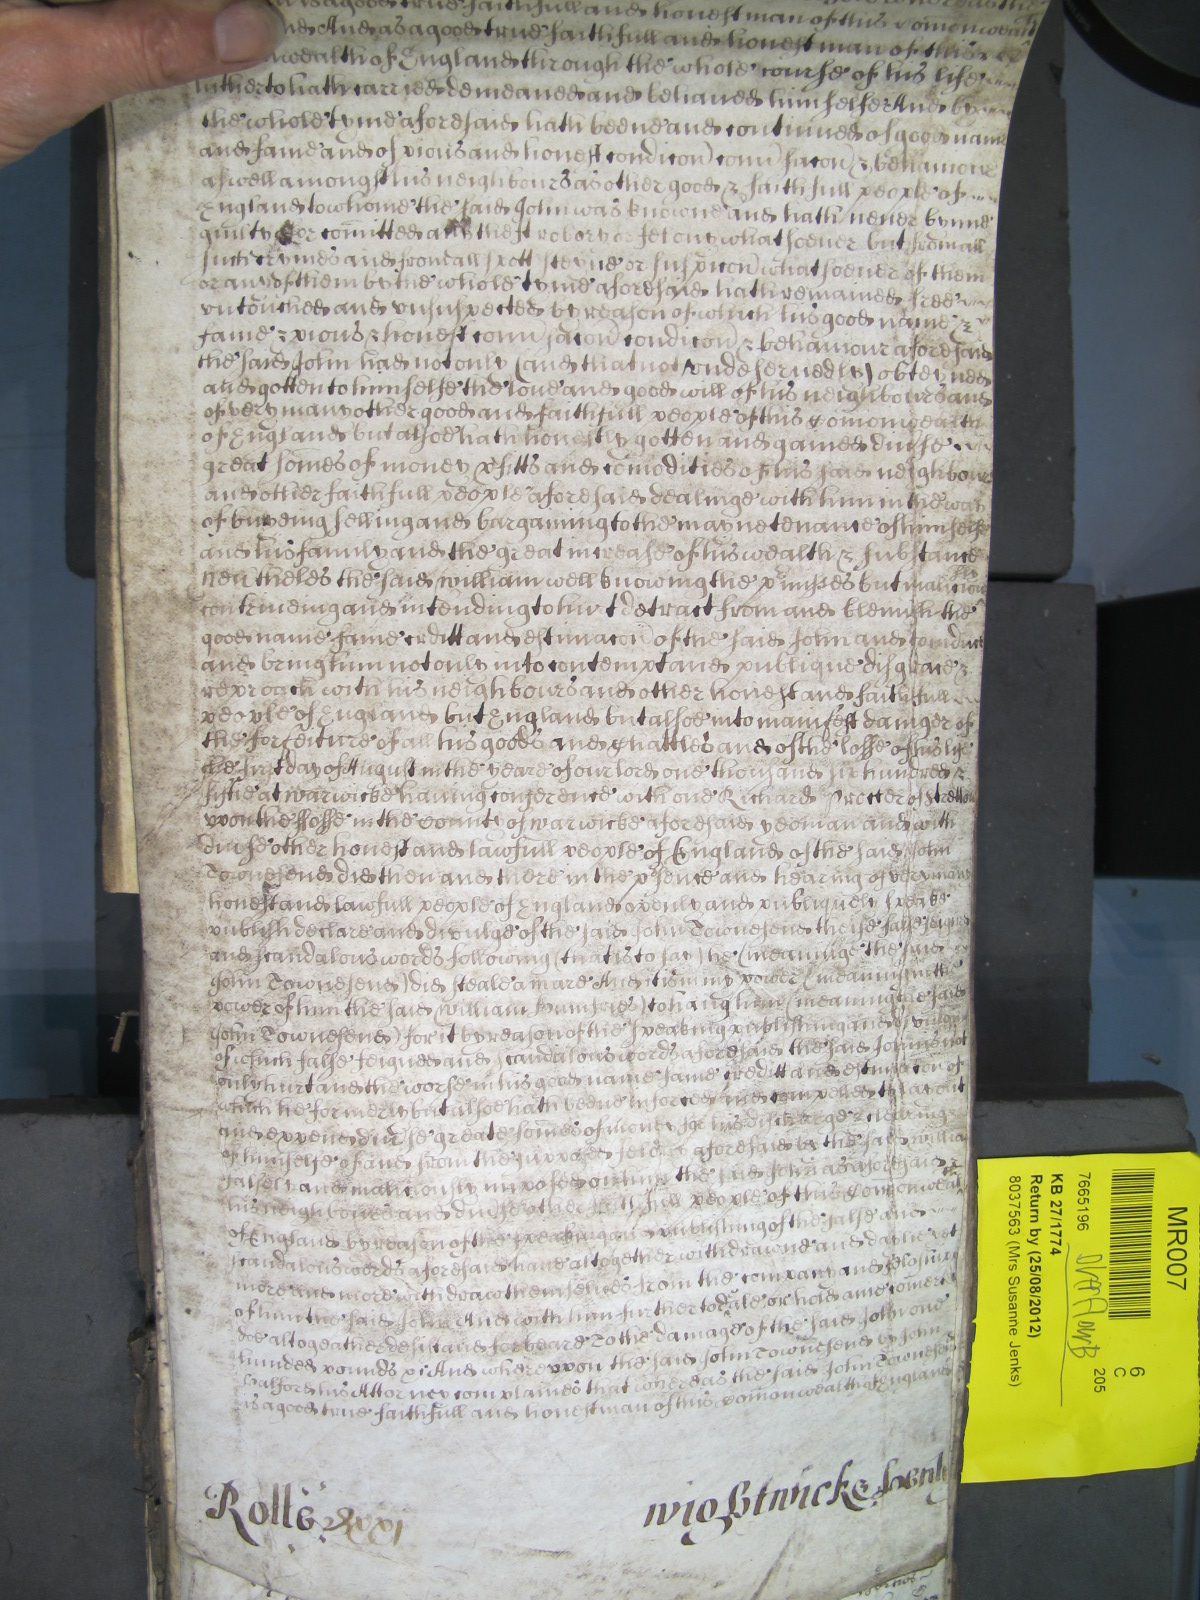 is a good true faithfull and honest man of this Comonwealth
and And as a good true faithfull and honest man of this
Comonwealth of England through the whole course of his life
hitherto hath carried demeaned and behaued himselfe And by
the whole tyme aforesaid hath beene and continued of good name
and fame and of pious and honest condicon conu'sacon & behauiour
aswell amongst his neighbours as other good & faithfull people of
England to whome the said John was knowne and hath neuer byne
guilty or comitted any theft robory or felony whatsoeuer but from all
such crymes and from all spott steyne or suspicon whatsoeuer of them
or any of them by the whole tyme aforesaid hath remained free
vntouched and vnsuspected by reason of which his good name &
fame & pious & honest conu'sacon condicon & behauiour aforesaid
the said John had not only (and that not vndeseruedly) obteyned
and gotten to himselfe the loue and good will of his neighbours and
of very many other good and faithfull people of this Comonwealth
of England but alsoe hath honestly gotten and gained diuerse
great somes of money p'fitts and comodities of his said neighbours
and other faithfull people aforesaid dealinge with him in the way
of buyeing selling and bargaining to the maynetenance of himselfe
and his family and the great increase of his wealth & substance
Neu'theles the said William well knowing the p'misses but maliciously
contriueing and intending to hurt detract from and blemish the
good name fame creditt and estimacon of the said John and to induce
and bring him not only into contempt and publique disgrace &
reproach with his neighbours and other honest and faithfull
people of England but England but alsoe into manifest danger of
the forfeiture of all his goods and chattles and of the losse of his life
the first day of August in the yeare of our lord one thousand six hundred &
fiftie at Warwicke hauing conference with one Richard Procter of Stretton
vpon the ffosse in the County of Warwicke aforesaid yeoman and with
diu'se other honest and lawfull people of England of the said John
Townesend did then and there in the p'sence and hearing of very many
honest and lawfull people of England openly and publiquely speake
publish declare and divulge of the said John Townesend theise false feigned
and scandalous words following (that is to say) he (meaninge the said
John Townesend) did steale a mare And it is in my power (meaning in the
power of him the said William ) to hang him (meaning the said
John Townesend) for it by reason of the speaking publishing and
of which false feigned and scandalous words aforesaid the said John is not
only hurt and the worse in his good name fame creditt and estimacon of
which he formerly but alsoe hath beene inforced and compelled to lay out
and expend diu'se great somes of money for his discharge & clearing
of himselfe of and from the supposed felony aforesaid by the said William
falsely and maliciously imposed vpon him the said John as aforesaid &
his neighboures and diuerse other faithfull people of this Comonwealth
of England by reason of the speaking and publishing of the false and
scandalous words aforesaid haue altogether withdrawne and daylie
more and more withdraw themselues from the company and
of him the said John And with him further to deale or hold any comerce
doe altogeather desist and forbeare To the damage of the said John one
hundred pounds And wherevpon the said John Townesend by John
Halford his Attorney complaines that whereas the said John Townesend
is a good true faithfull and honest man of this Comonwealth of England
Rolle xxi
Wightwicke
MR007
6
C
205
7665196
KB 27/1774
Return by (25/08/2012)
8037563 (Mrs Susanne Jenks)